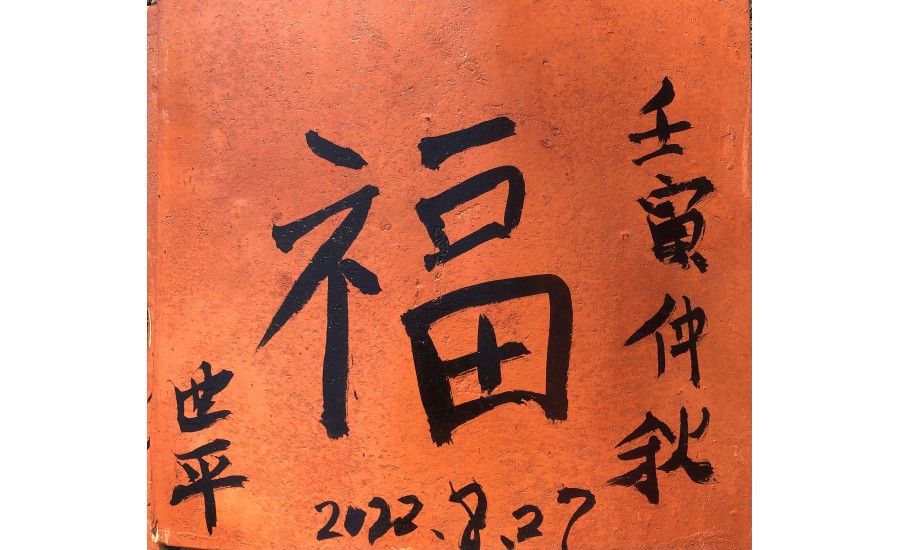 壬寅仲秋
福
世平
2022.8.27